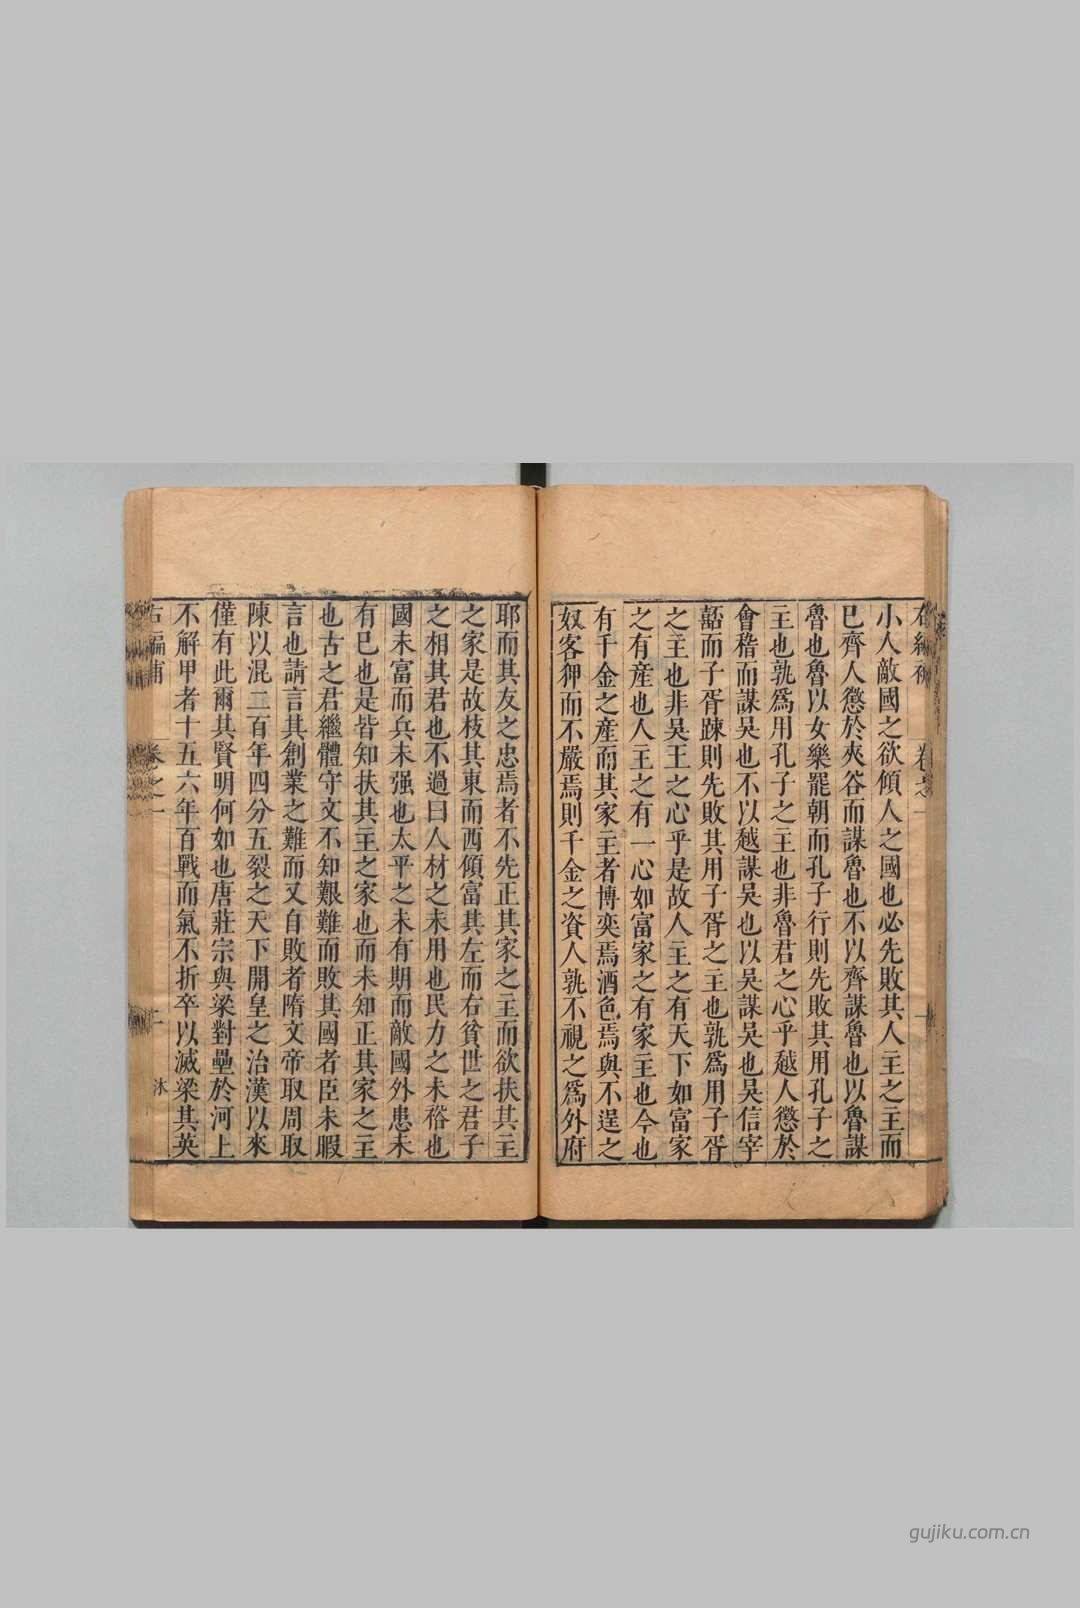 右編補 卷之一 一
小人敵國之欲傾人之國也必先敗其人主之主而
已齊人懲於夾谷而謀魯也不以齊謀魯也以魯謀
魯也魯以女樂罷朝而孔子行則先敗其用孔子之
主也孰爲用孔子之主也非魯君之心乎越人懲於
會稽而謀吳也不以越謀吳也以吳謀吳也吳信宰
嚭而子胥踈則先敗其用子胥之主也孰爲用子胥
之主也非吳王之心乎是故人主之有天下如富家
之有産也人主之有一心如富家之有家主也今也
有千金之産而其家主者博奕焉酒色焉與不逞之
奴客狎而不嚴焉則千金之資人孰不視之爲外府
耶而其友之忠焉者不先正其家之主而欲扶其主
之家是故枝其東而西傾富其左而右貧世之君子
之相其君也不過曰人材之未用也民力之未裕也
國未富而兵未强也太平之未有期而敵國外患未
有已也是皆知扶其主之家也而未知正其家之主
也古之君繼體守文不知艱難而敗其國者臣未暇
言也請言其創業之難而又自敗者隋文帝取周取
陳以混二百年四分五裂之天下開皇之治漢以來
僅有此爾其賢明何如也唐莊宗與梁對壘於河上
不解甲者十五六年百戰而氣不折卒以滅梁其英
右編補 卷之一 二 沐
gujiku.com.cn